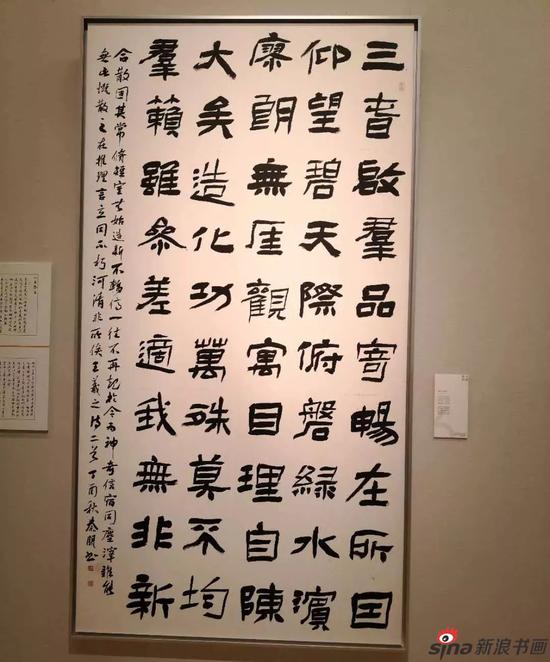 三旾啟羣品寄暢在所囙
仰望碧天際俯磐綠水濱
寥朗無厓觀寓目理自陳
大矣造化功萬殊莫不均
羣籟雖叅差適我無非新
合散固其常脩短定无始造新不暫停一往不再起於今為神奇信宿同塵滓誰能
無此慨散之在推理言立同不朽河清非所俟王羲之詩二首丁酉秋
sina新浪书画